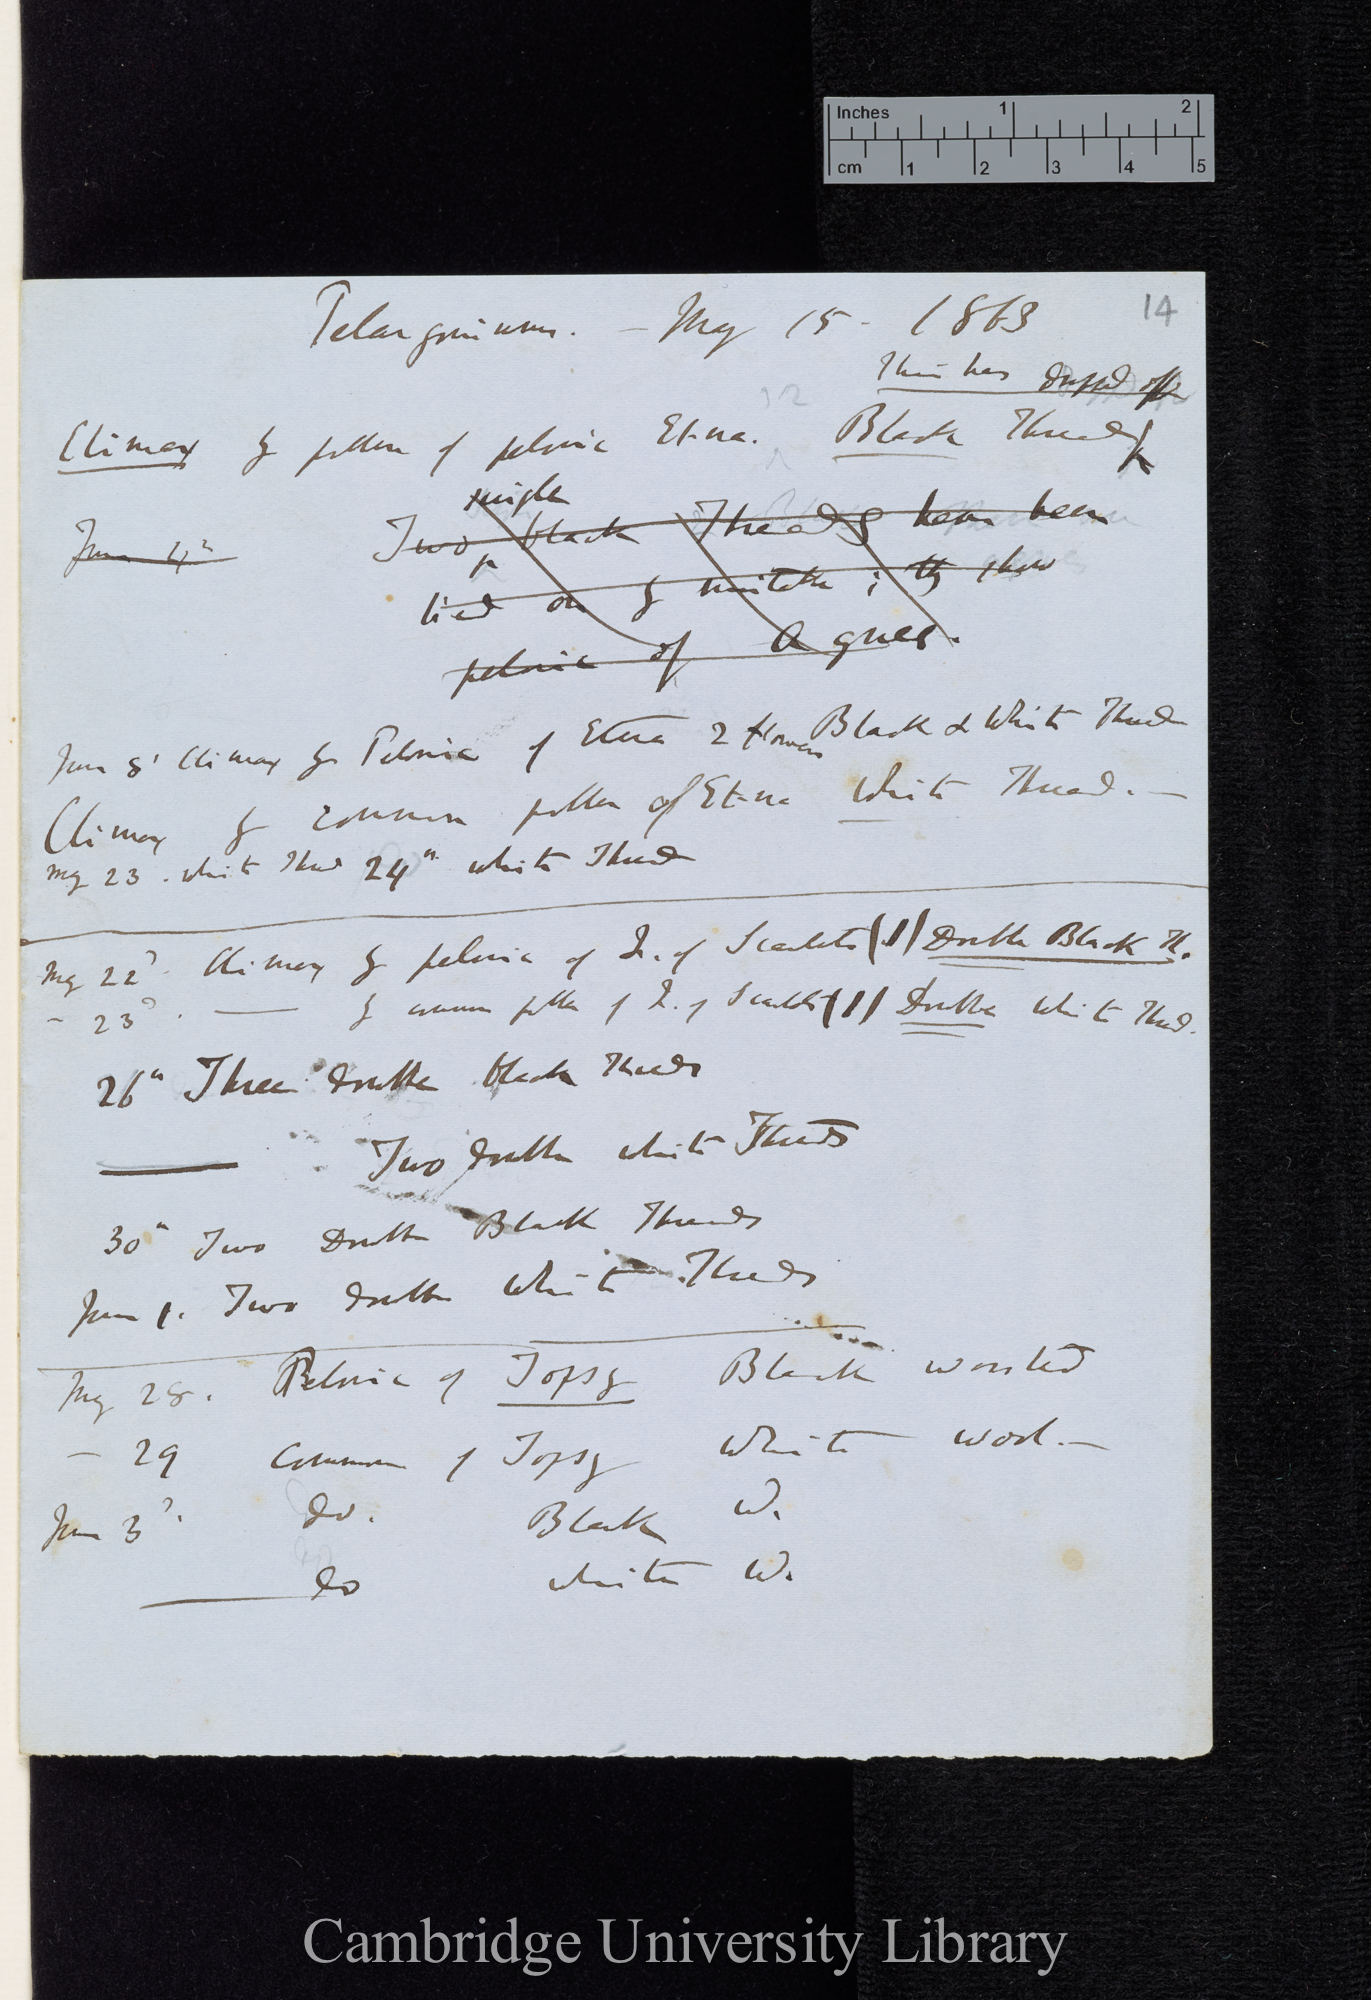 Inches 1 2
cm 1 2 3 4 5
14
Pelargoniums. — May 15 - 1863
This has dropped off
Climax by pollen of peloric Etna. Black Thread
single
June 4th Two black Threads have been
tied on by mistake; they show
peloric of Agnes.
June 5' Climax by Peloric of Etna 2 flowers Black & White Thread
Climax by common pollen of Etna White Thread. —
May 23. white Thread 24th white Thread
May 22d. Climax by peloric of Q. of Scarlets (11) Double Black Th.
— 23d. —— by common pollen of Q. of Scarlets (11) Double white Thread.
26th Three double black Threads
—— Two double white Threads
30th Two Double Black Threads
June 1. Two double white Threads
May 28. Peloric of Topsy Black worsted
— 29 Common of Topsy White wool. —
June 3d. do. Black W.
—— do white W.
Cambridge University Library